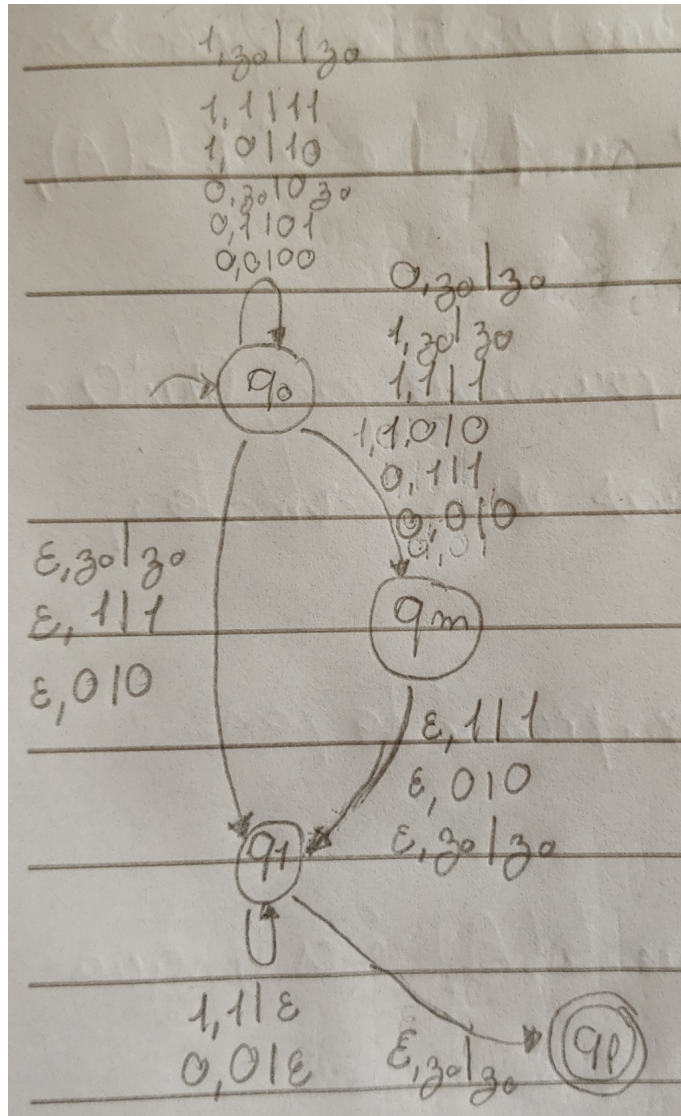 1,z₀|1z₀
1,1|11
1,0|10
0,z₀|0z₀
0,1|01
0,0|00
0,z₀|z₀
1,z₀|z₀
q₀
1,1|1
1,1,0|0
0,1|1
0,0|0
0,0,
ε,z₀|z₀
ε,1|1
ε,0|0
qm
ε,1|1
ε,0|0
ε,z₀|z₀
q1
1,1|ε
0,0|ε
ε,z₀|z₀
qf